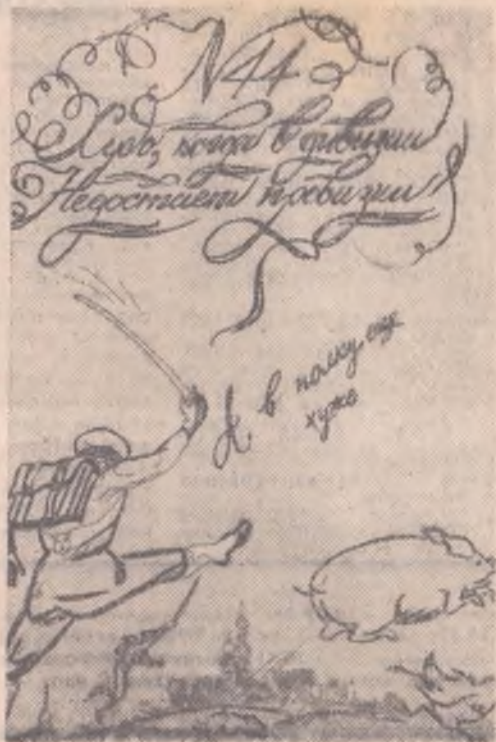 N 44
Худо, когда в дивизии
Недостает провизии
А в полку еще
хуже